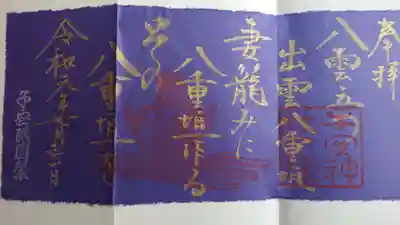 奉拝
八雲立つ
出雲八重垣
妻籠みに
八重垣作る
その
八重垣を
令和元年